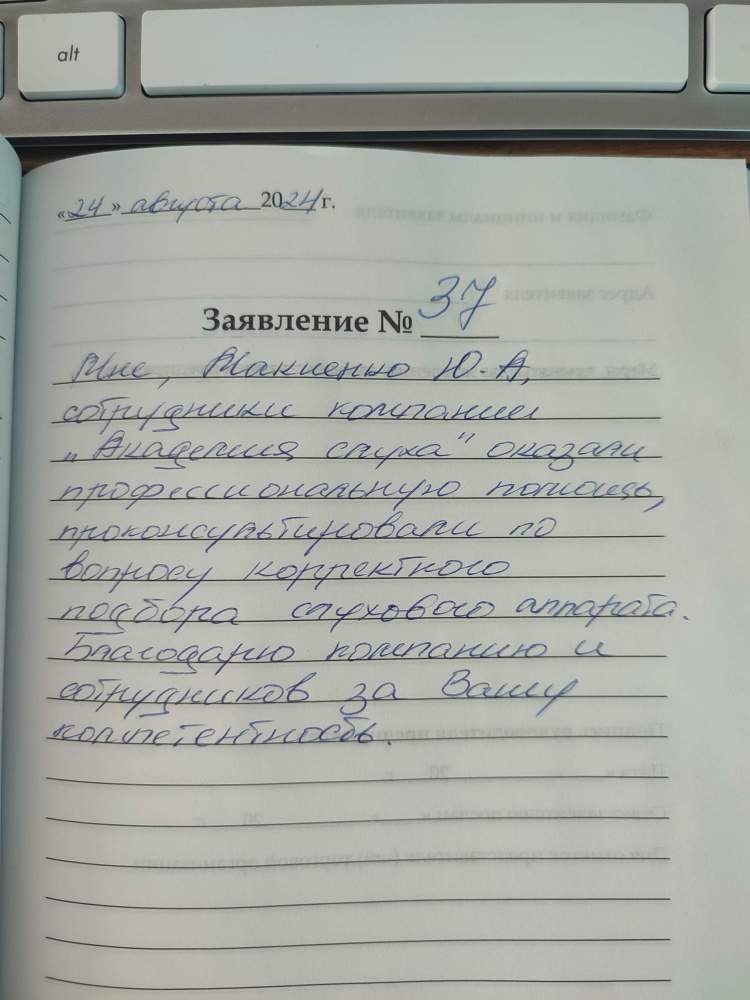 alt
«24» августа 2024 г.
Заявление № 37
Мне, Макиенко Ю.А,
сотрудники компании
"Академия слуха" оказали
профессиональную помощь,
проконсультировали по
вопросу корректного
подбора слухового аппарата.
Благодарю компанию и
сотрудников за Вашу
компетентность.